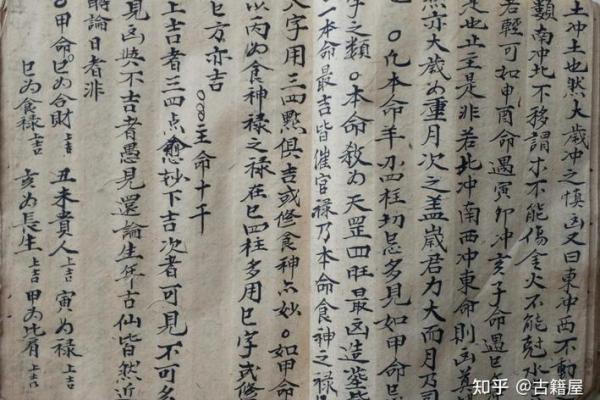 土冲土也然大歲冲之慎凶又曰東冲西不動
類南冲北不移謂才不能傷金火不能尅水
若輕可如甲酉命遇寅卯冲亥子命遇巳
是也止主是非若北冲南西冲東命則凶
然亦大歲為重月次之盖嵗君力大而月乃司
也〇凢本命羊刃四柱切忌多見如甲命忌
字之類〇本命殺為天罡四旺最凶造塟
一本命最吉皆催官禄乃本命食神之禄
八字用三四點俱吉或修食神六妙〇如甲命
以丙為食神禄之禄在巳四柱多用巳字或修
巳方亦吉
〇〇主命十干
上吉者三四点愈抄下吉次者可見不可多
見凶與不吉者愚見還論生年古仙皆然近
時論日者非
〇甲命巳為合財上吉 丑未貴人上吉 寅為禄上吉
巳為食禄上吉 亥為長生上吉 甲為比肩上吉
知乎 @古籍屋